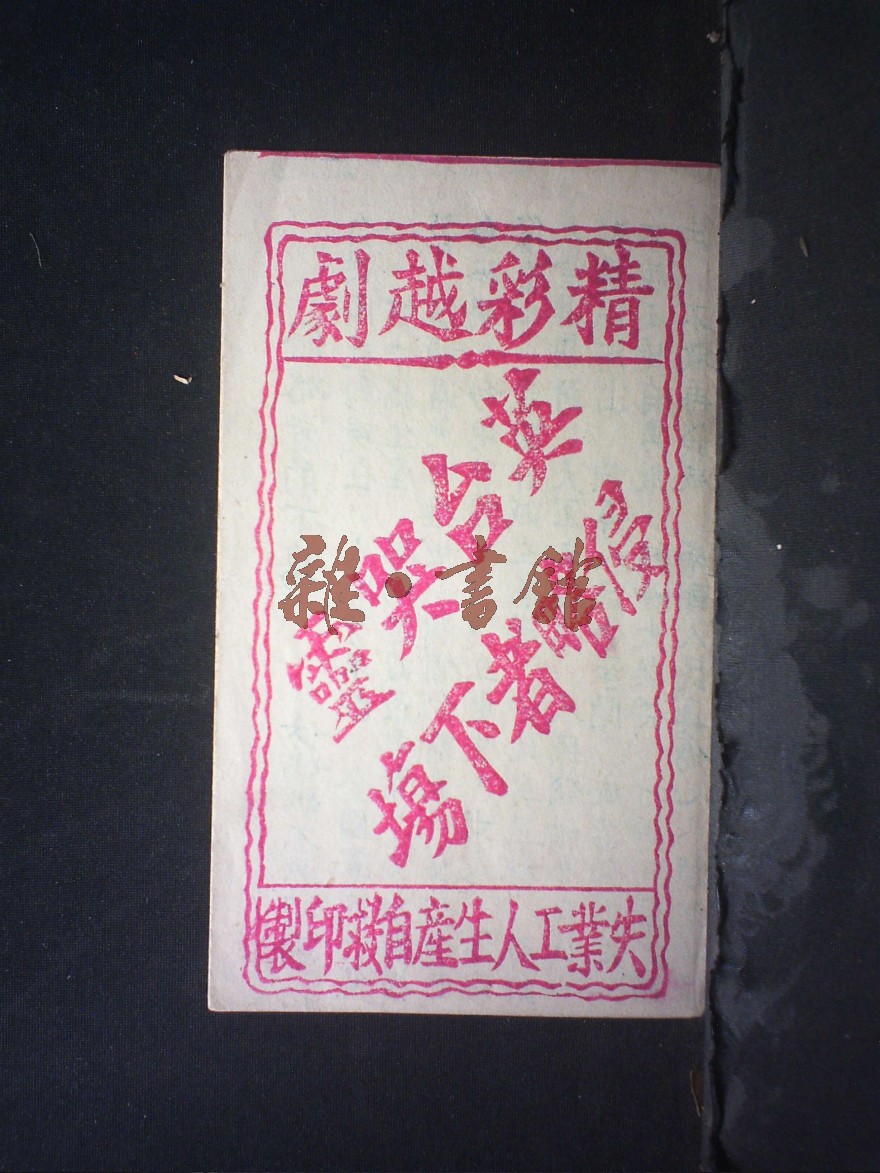 精彩越劇
英台哭靈
侵略者下場
失業工人生產自救印製
雜·書館